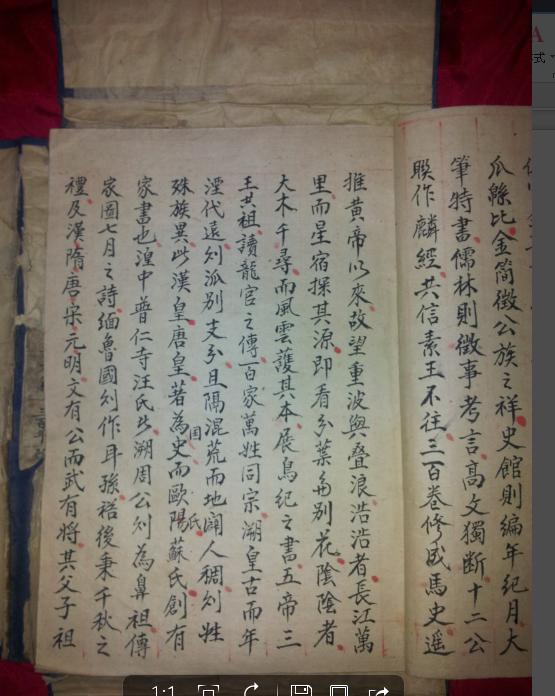 瓜緜比金简徵公族之祥史館則编年紀月大
筆特書儒林則徵事考言高文獨断十二公
作麟經共信素王不往三百卷修成馬史遥
推黄帝以來故望重波與叠浪浩浩者長江萬
里而星宿探其源即看分葉别花陰陰者
大木千尋而風雲護其本展鳥紀之書五帝三
王共祖讀龍官之傳百家萬姓同宗溯皇古而年
湮代遠刘派别支分且隔混荒而地闊人稠刘姓
殊族異此漢皇唐皇著為國史而歐陽氏蘇氏創有
家書也湟中普仁寺汪氏溯周公刘為鼻祖傳
家圖七月之詩緬魯國刘作耳孫後秉千秋之
禮及漢隋唐宋元明文有公而武有將其父子祖
A
式
1:1